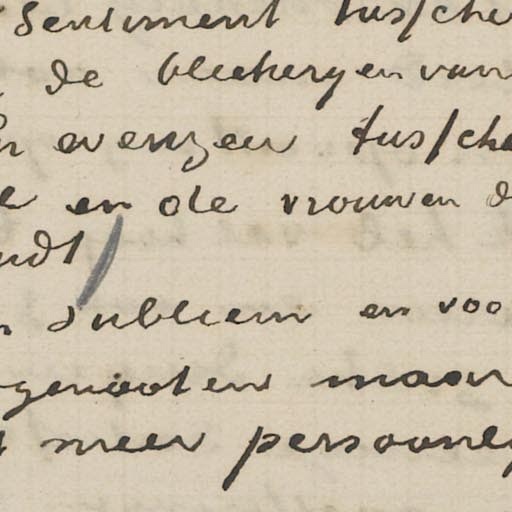 sentiment tussche
de bleekeryen van
evenzeer tussche
en de vrouwen d
ndt
subliem en voo
genooten maar
meer persoonly